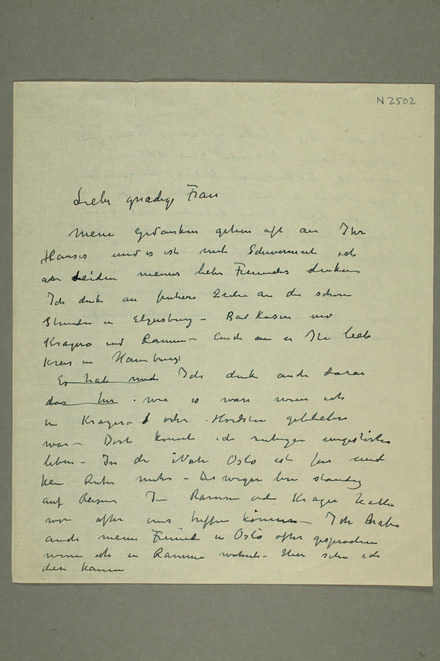 N 2502
Liebe gnädige Frau
Meine Gedanken gehen oft an Ihr
Haus und es ist mit Schwermuth ich
an Leiden meines lieben Freundes denken
Ich denke an frühere Zeiten an die schönen
Stunden in Elgersburg – Bad Kösen und
Kragerø und Ramme – auch an Ihr liebe
Kreis in Hamburg
Es hat mich Ich denke auch daran
das wie es wäre wenn ich
in Kragerø oder Hvidsten geblieben
war – Dort konnte ich ruhig ungestört
leben – In der Nähe Oslo ist
kein Ruhe mehr – Deswegen bin ständig
auf Reisen In Ramme oder Kragerø hätte
wir öfter uns treffen können – Ich habe
auch meine Freunde in Oslo öfter gesprochen
wenn ich in Ramme wohnte – Hier sehe ich